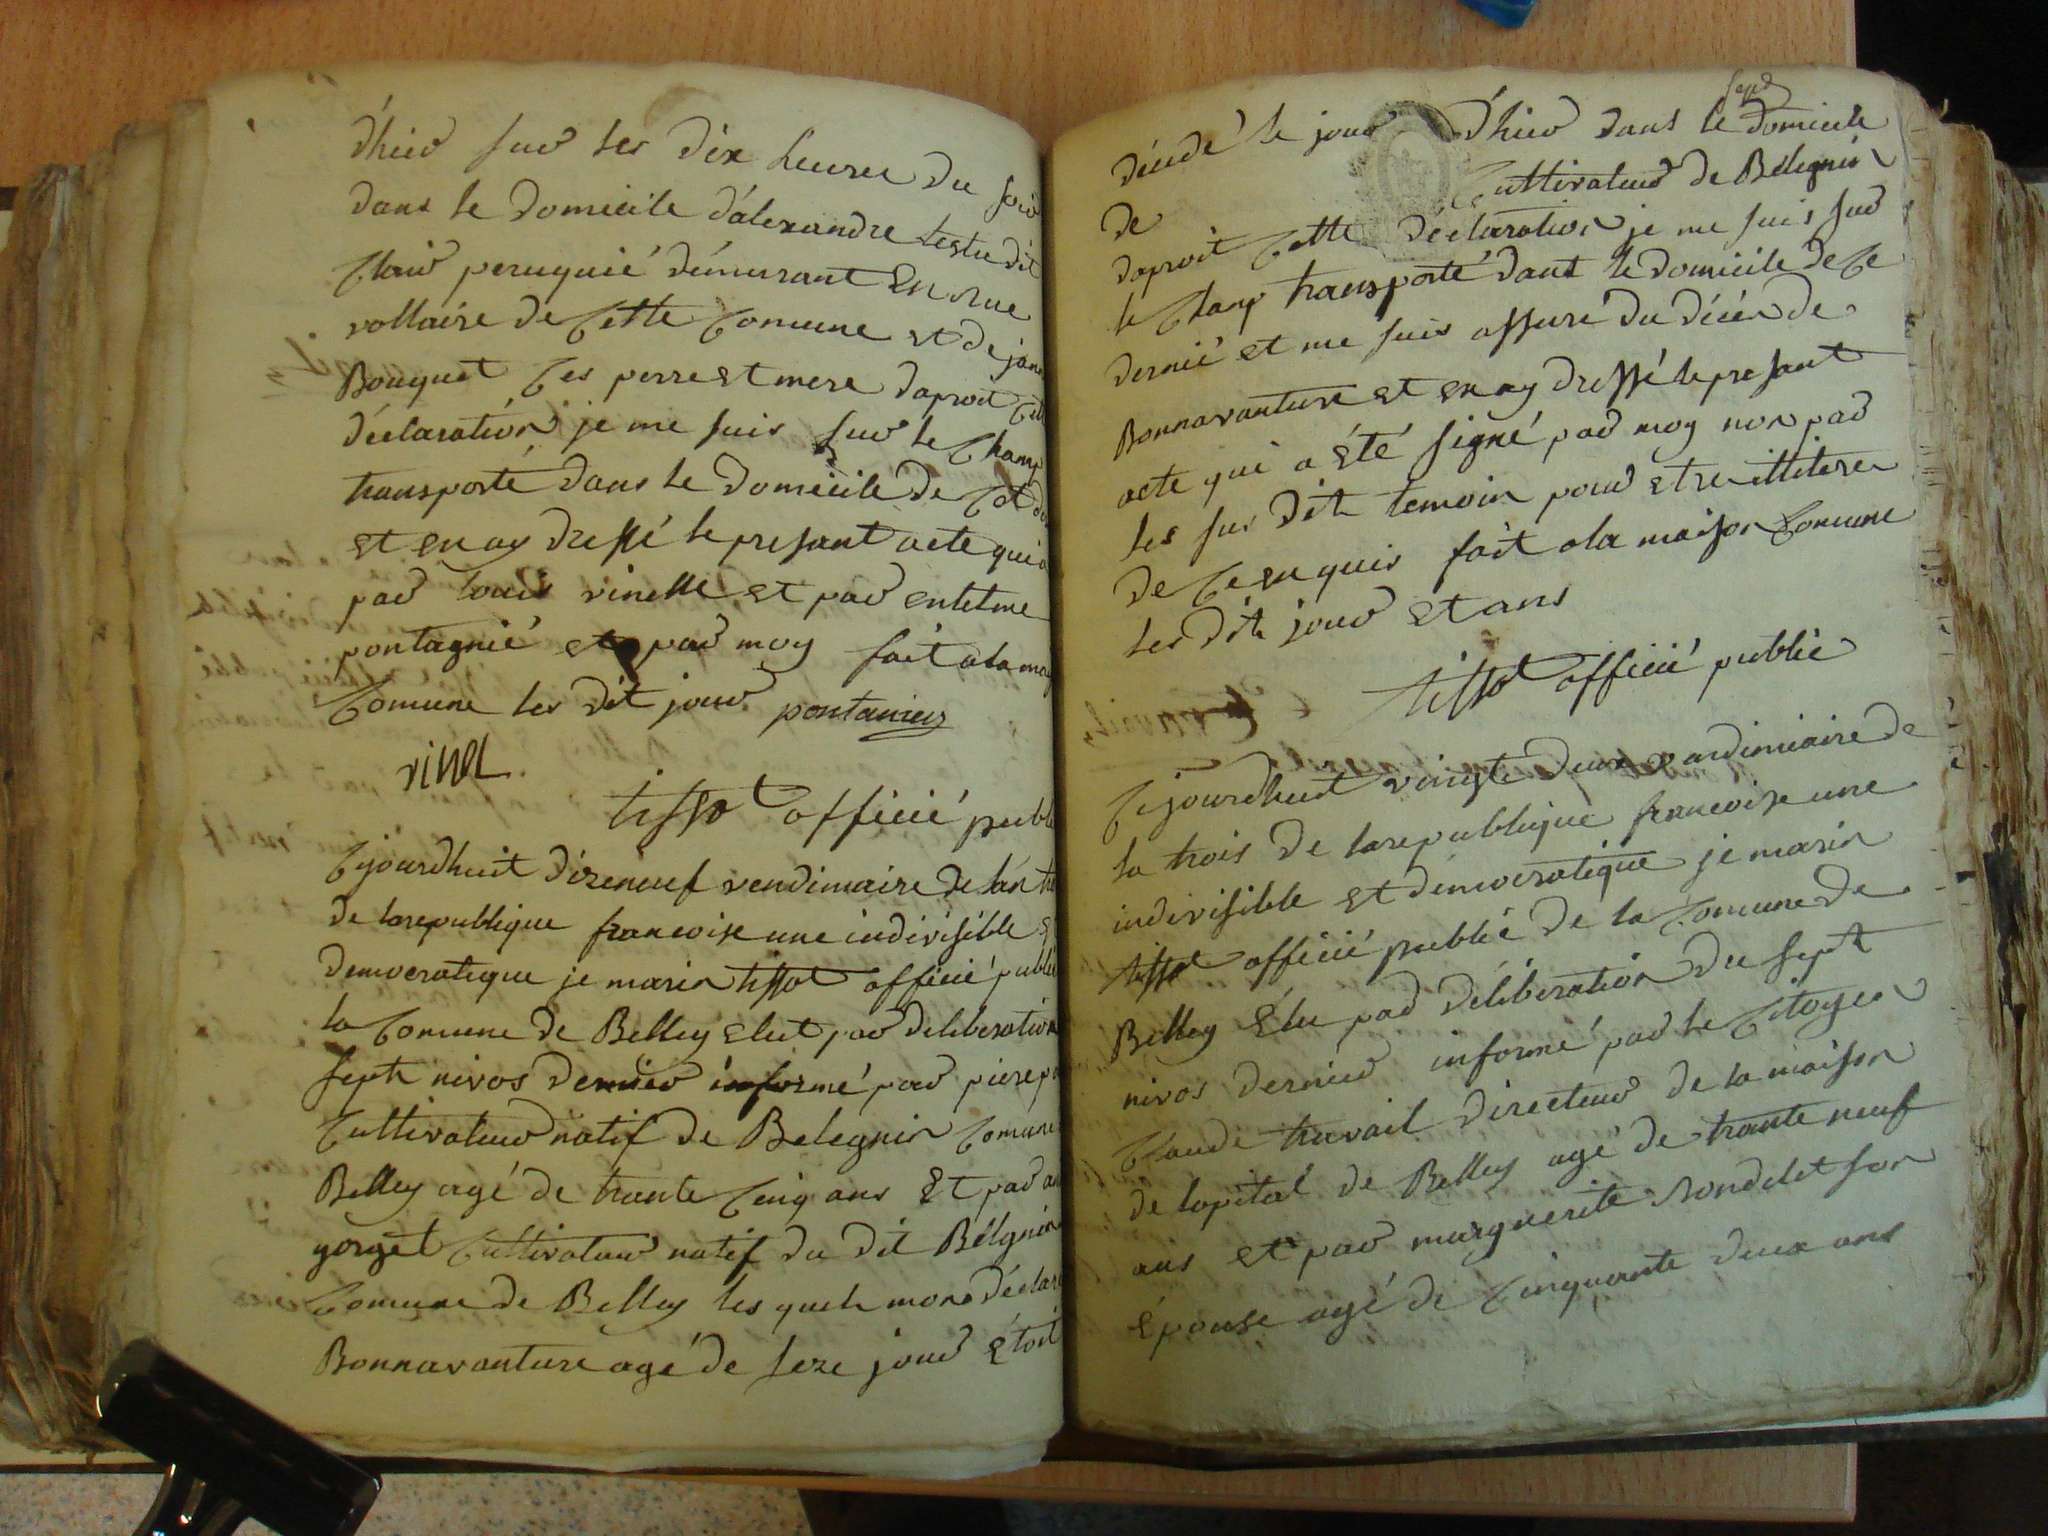 d'hier sur les dix heures du soir
dans le domicile d'alexandre testu dit
Clair peruquié démurant En rue
voltaire de Cette Comune et de jane
Bouquet Ces perre et mere daproit Cet
déclaration je me suis sur le Champ
transporté dans le domicile de Cet
et en ay dressé le presant acte qui a
par Louis vinelle et par
pontagnié et par moy fait a la mai
Comune les dit jour pontanier
vinel
tissot officié publi
Cejourdhuit dixeneuf vendimaire de lan
de la republique francoise une indivisible
democratique je marin tissot officié public
la Comune de Belley elut par deliberation
sept nivos dernier informé par piere
Cultivateur natif de Belegnin Comune
Belley agé de trante Cinq ans Et par
gorget Cultivateur natif du dit Bélgnin
Comune de Belley les quels mon déclare
Bonnavanture agé de seze jour Étoit
sept
décédé le jour d'hier dans le domicile
de Cultivateur de Bélegnin
daproit Cette déclaration je me suis sur
le Champ transporté dans le domicile de Ce
dernié et me suis assuré du décés de
Bonnavanture et en ay dressé le presant
acte qui a été signé par moy non par
les sus dit temoin pour etre illiterer
de Ce enquis fait a la maison Comune
les dit jour et ans
tissot officié public
Cejourdhuit vingte deux vandimiaire de
la trois de la republique francoise une
indivisible et démocratique je marin
tissot officié public de la Comune de
Belley Élu par déliberation du sept
nivos dernier informé par le Citoyen
Claude travail directeur de la maison
de lopital de Belley agé de trante neuf
ans et par marguerite Rondelet son
épouse agé de Cinquante deux ans